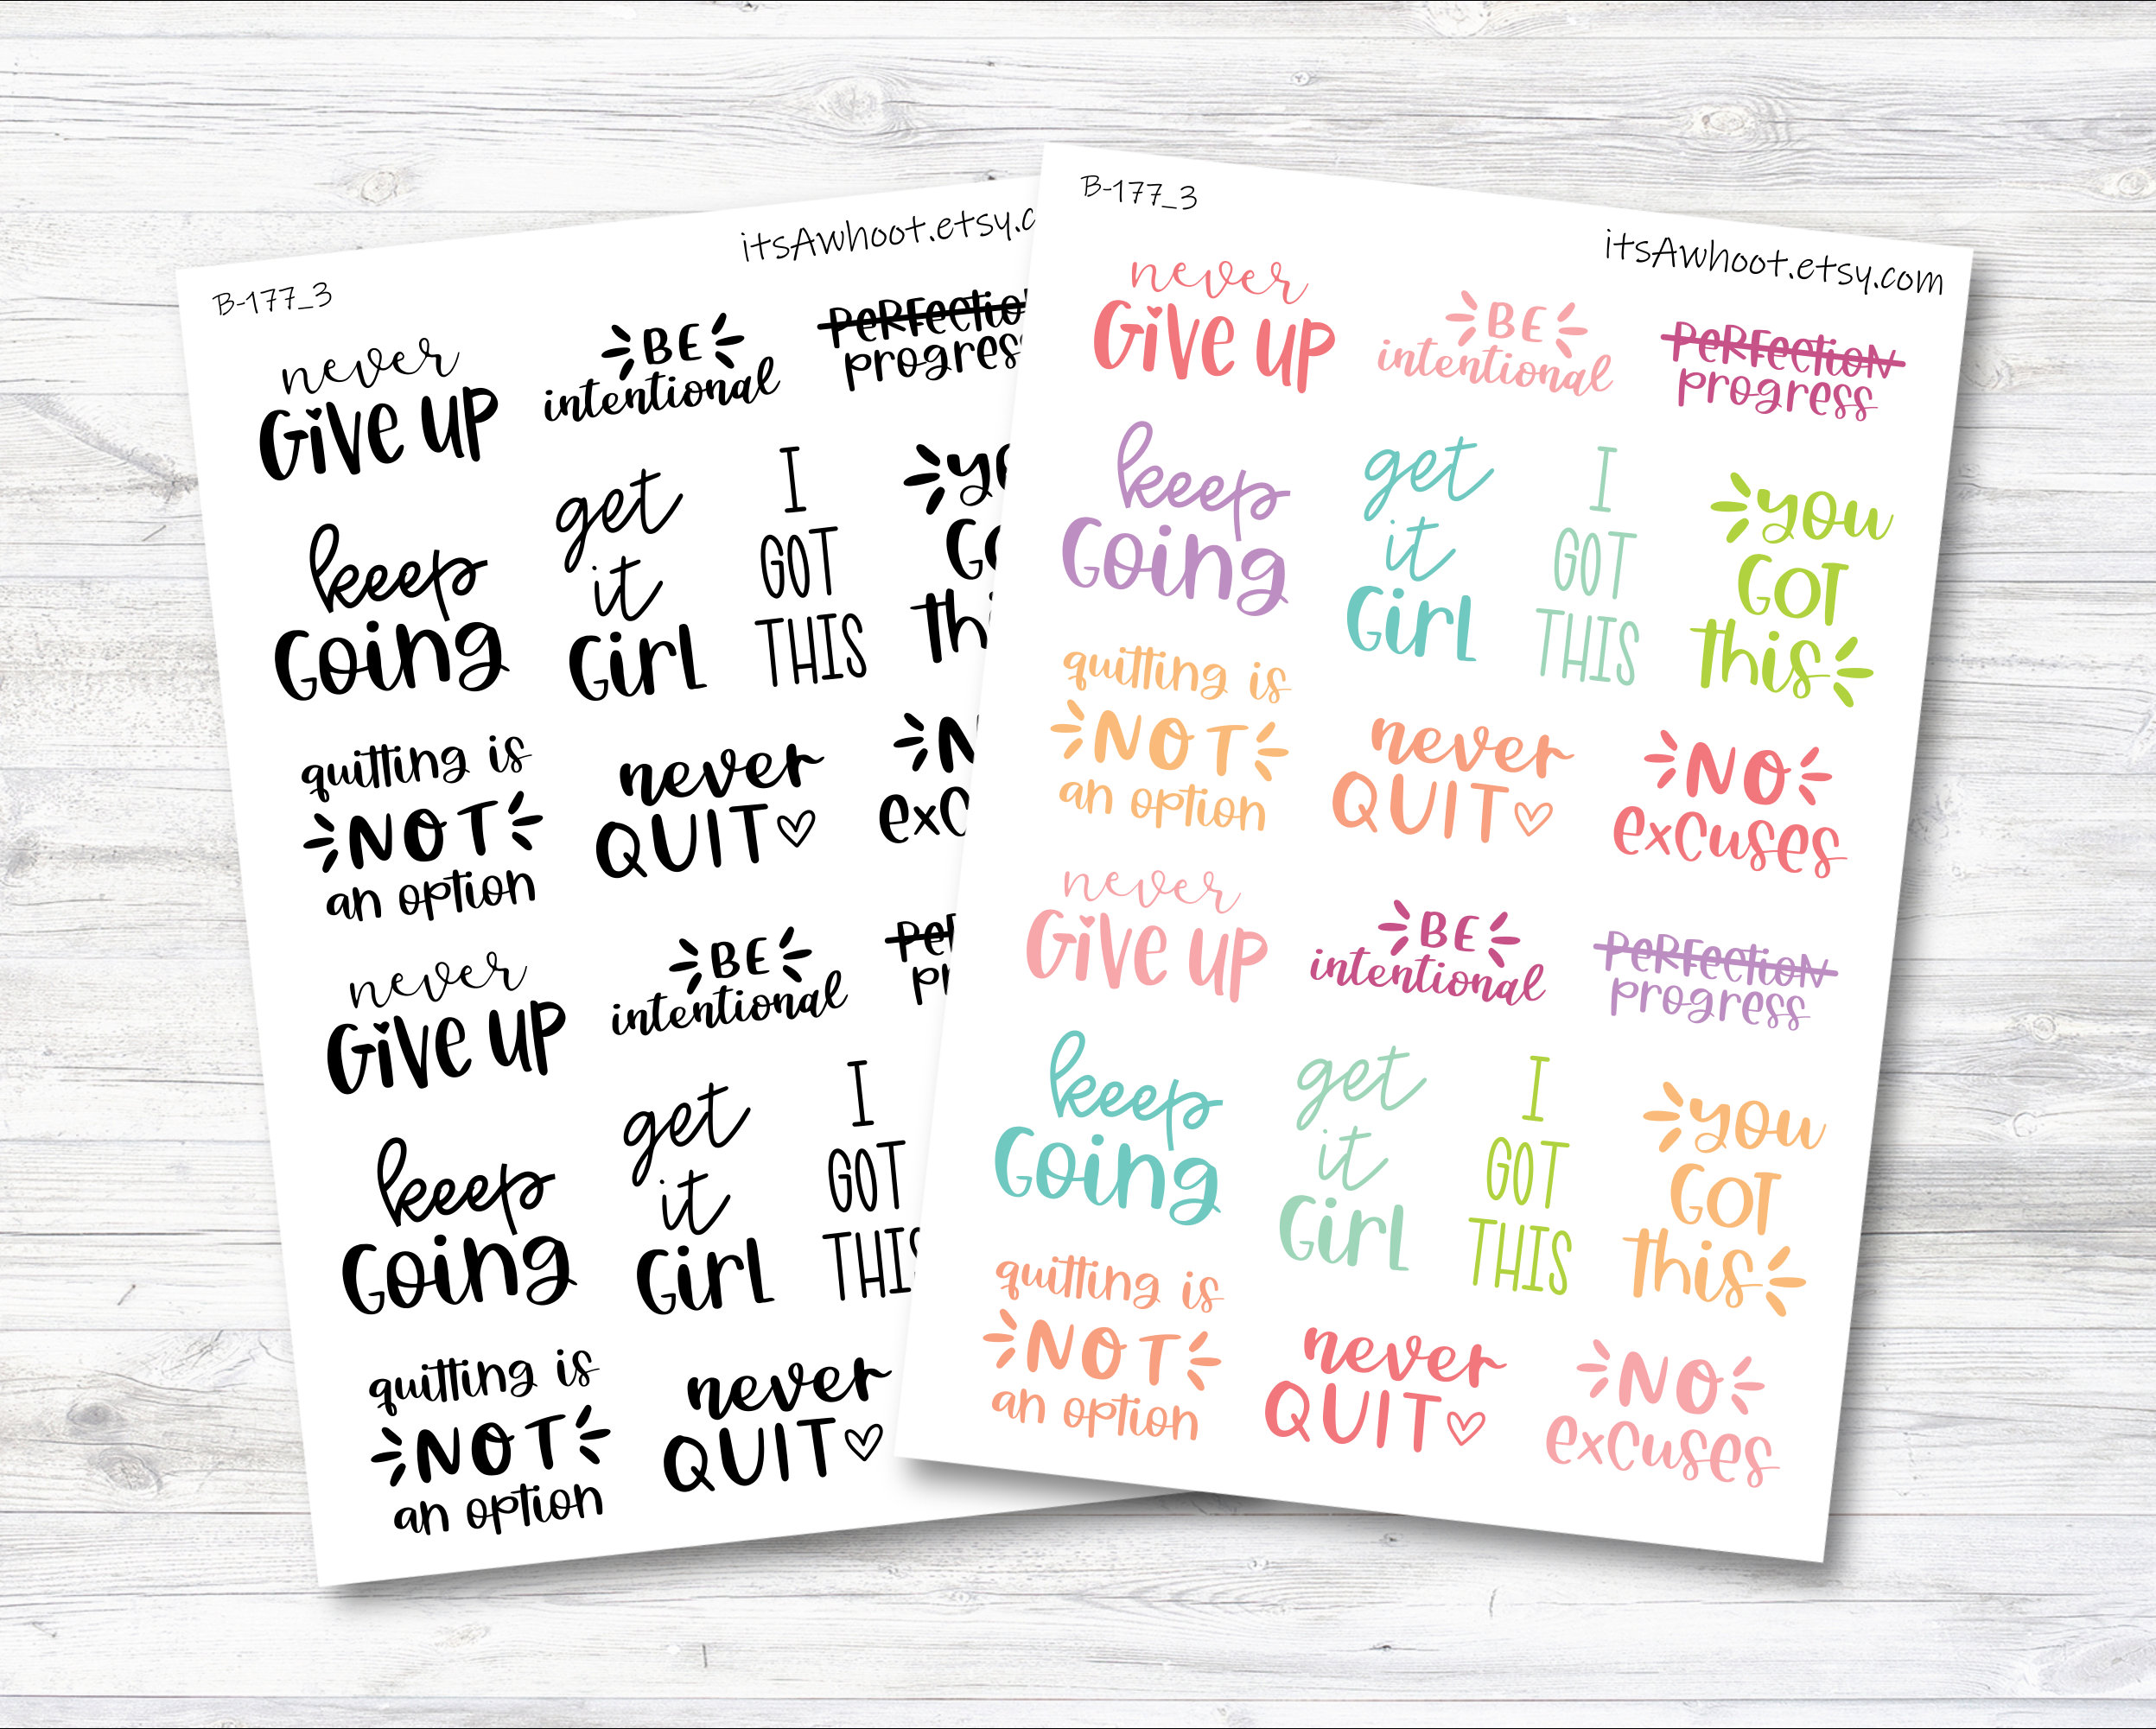 B-177_3
itsAwhoot.etsy.c
never
Give up
BE
intentional
Perfectio
progres
keep
Going
get
it
Girl
I
GOT
THIS
yo
Go
th
quitting is
NOT
an option
never
QUIT
N
exc
never
Give up
BE
intentional
Per
pr
keep
Going
get
it
Girl
I
GOT
THIS
quitting is
NOT
an option
never
QUIT
B-177_3
itsAwhoot.etsy.com
never
Give up
BE
intentional
Perfection
progress
keep
Going
get
it
Girl
I
GOT
THIS
you
Got
this
quitting is
NOT
an option
never
QUIT
NO
excuses
never
Give up
BE
intentional
Perfection
progress
keep
Going
get
it
Girl
I
GOT
THIS
you
Got
this
quitting is
NOT
an option
never
QUIT
NO
excuses